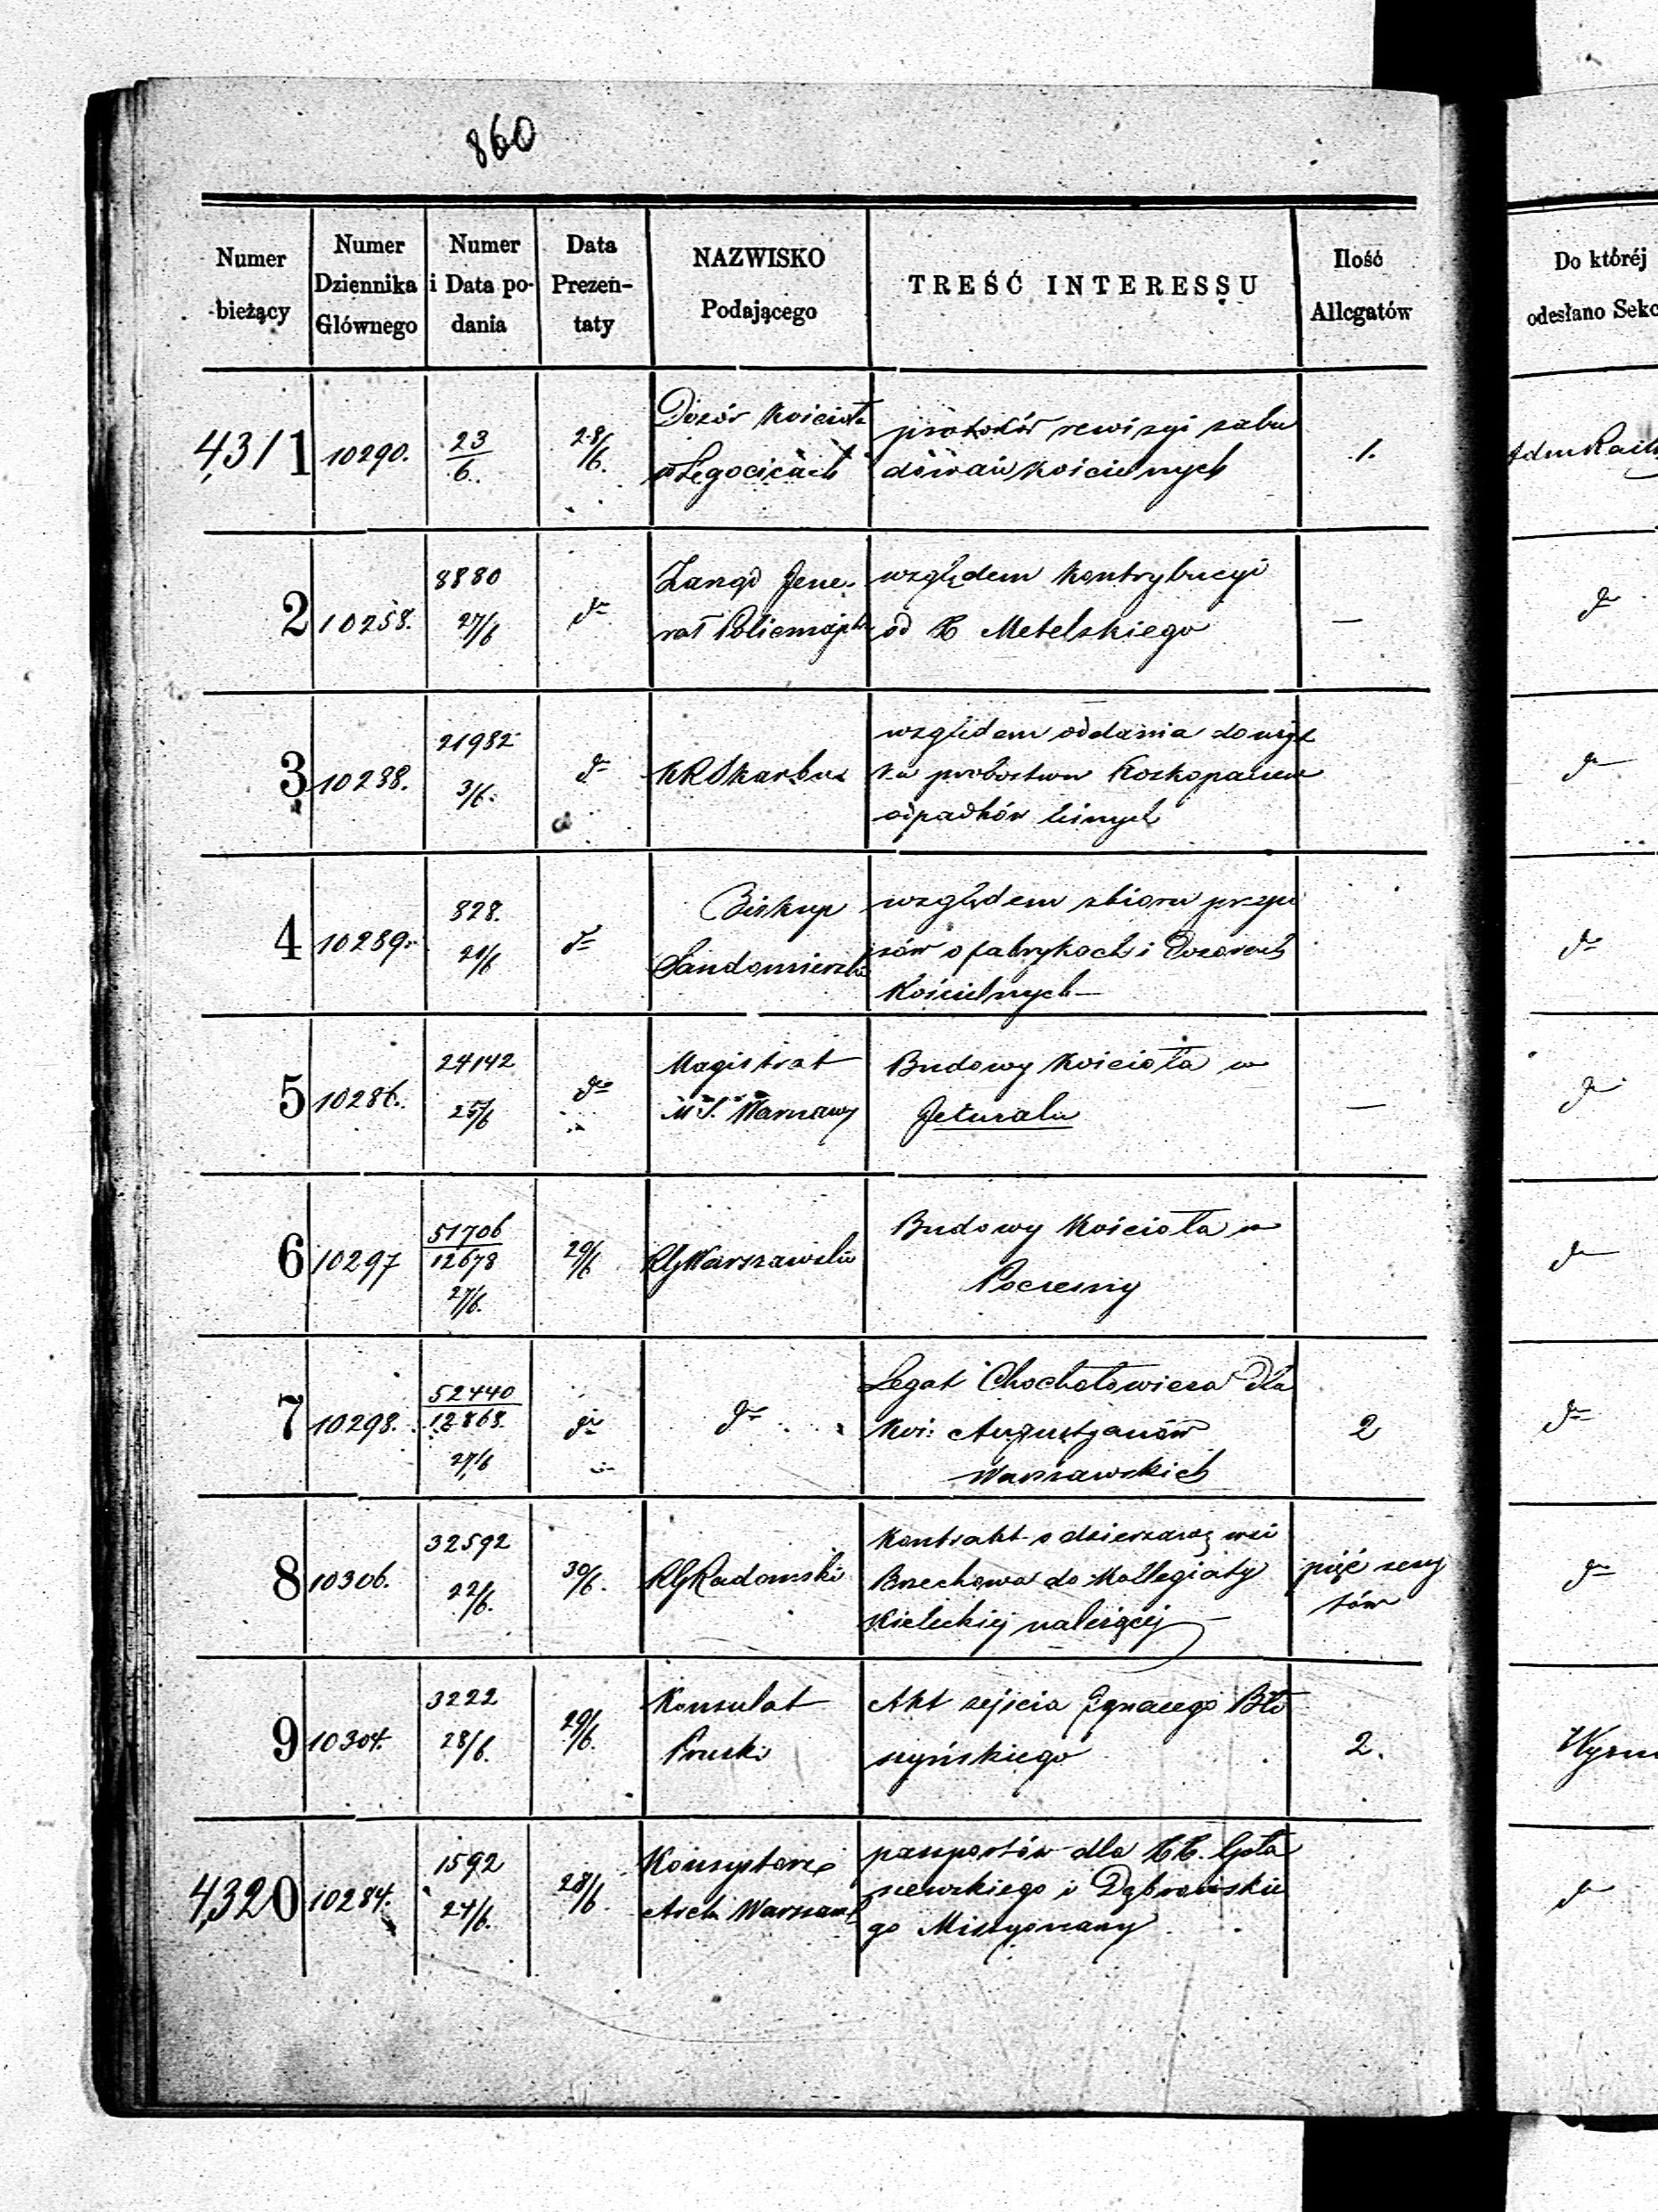 860
Numer bieżący | Numer Dziennika Głównego | Numer i Data podania | Data Prezentaty | NAZWISKO Podającego | TREŚĆ INTERESSU | Ilość Allegatów | Do któréj odesłano Sekc
4,311 | 10290. | 23/6. | 28/6. | Dozór Kościoła w Łęgocicach | protokół rewizyi zabu
dowań kościelnych | 1.
2 | 10258. | 8880 27/6 | do | Zarząd Jene:
rał Policmajstr | względem kontrybucyi
od X Metelskiego | — | do
3 | 10288. | 21982 3/6. | do | KRSkarbu | względem oddania do użyt
ku probostwu
odpadków leśnych | do
4 | 10289. | 828. 21/6 | do | Biskup
Sandomierski | względem zbioru przepi
sów o fabrykach i Dozorach
Kościelnych — | do
5 | 10286. | 24142 25/6 | do | Magistrat
M. S. Warszawy | Budowy kościoła w
Jeruzalu | — | do
6 | 10297 | 51706/12678 27/6. | 29/6 | RGWarszawski | Budowy Kościoła w
Poczesny | do
7 | 10298. | 52440/12868. 27/6 | do | do | Legat Chochołowicza dla
Koś: Augustyanów
Warszawskich | 2 | do
8 | 10306. | 32592 22/6. | 30/6. | RGRadomski | Kontrakt o dzierżawę wsi
Brzechowa do Kollegiaty
Kieleckiej należącej — | pięć zeszy
tów | do
9 | 10304. | 3222 28/6. | 29/6. | Konsulat
Pruski | Akt zejścia Ignacego Bło
szyńskiego | 2.
4,320 | 10284. | 1592 24/6. | 28/6. | Konsystorz
Arch. Warszaws | paszportów dla XX.
i Dąbrowskie
go Missyonarzy | do